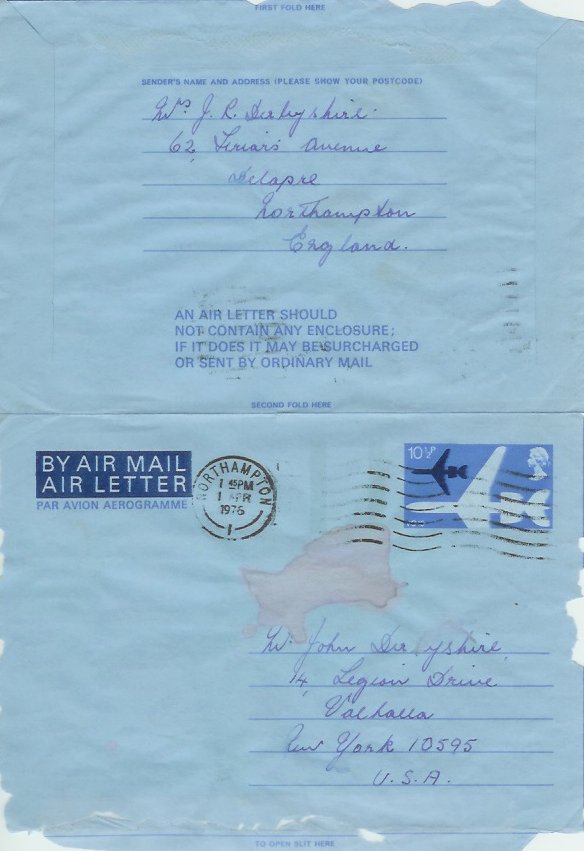 FIRST FOLD HERE
SENDER'S NAME AND ADDRESS (PLEASE SHOW YOUR POSTCODE)
Mrs J. R. Derbyshire.
62, Friars Avenue
Delapre
Northampton
England.
AN AIR LETTER SHOULD
NOT CONTAIN ANY ENCLOSURE;
IF IT DOES IT MAY BE SURCHARGED
OR SENT BY ORDINARY MAIL
SECOND FOLD HERE
BY AIR MAIL
AIR LETTER
PAR AVION AEROGRAMME
NORTHAMPTON
1 45PM
1 APR
1976
1
10½P
Mr John Derbyshire,
14, Legion Drive
Valhalla
New York 10595
U.S.A.
TO OPEN SLIT HERE